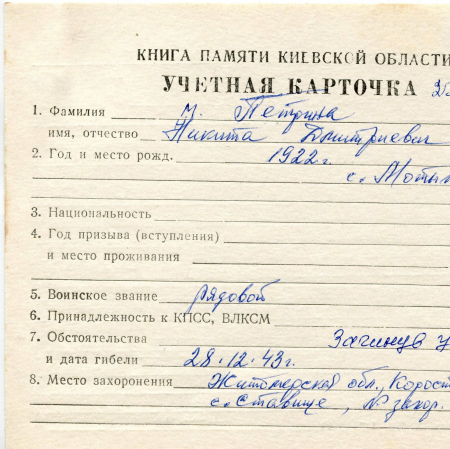 КНИГА ПАМЯТИ КИЕВСКОЙ ОБЛАСТИ
УЧЕТНАЯ КАРТОЧКА
1. Фамилия М. Петрина
имя, отчество Никита Дмитриевич
2. Год и место рожд. 1922 г.
с. Мотыж
3. Национальность
4. Год призыва (вступления)
и место проживания
5. Воинское звание рядовой
6. Принадлежность к КПСС, ВЛКСМ
7. Обстоятельства Загинув у
и дата гибели 28.12.43 г.
8. Место захоронения Житомирская обл., Корост
с. Ставище, № захор.